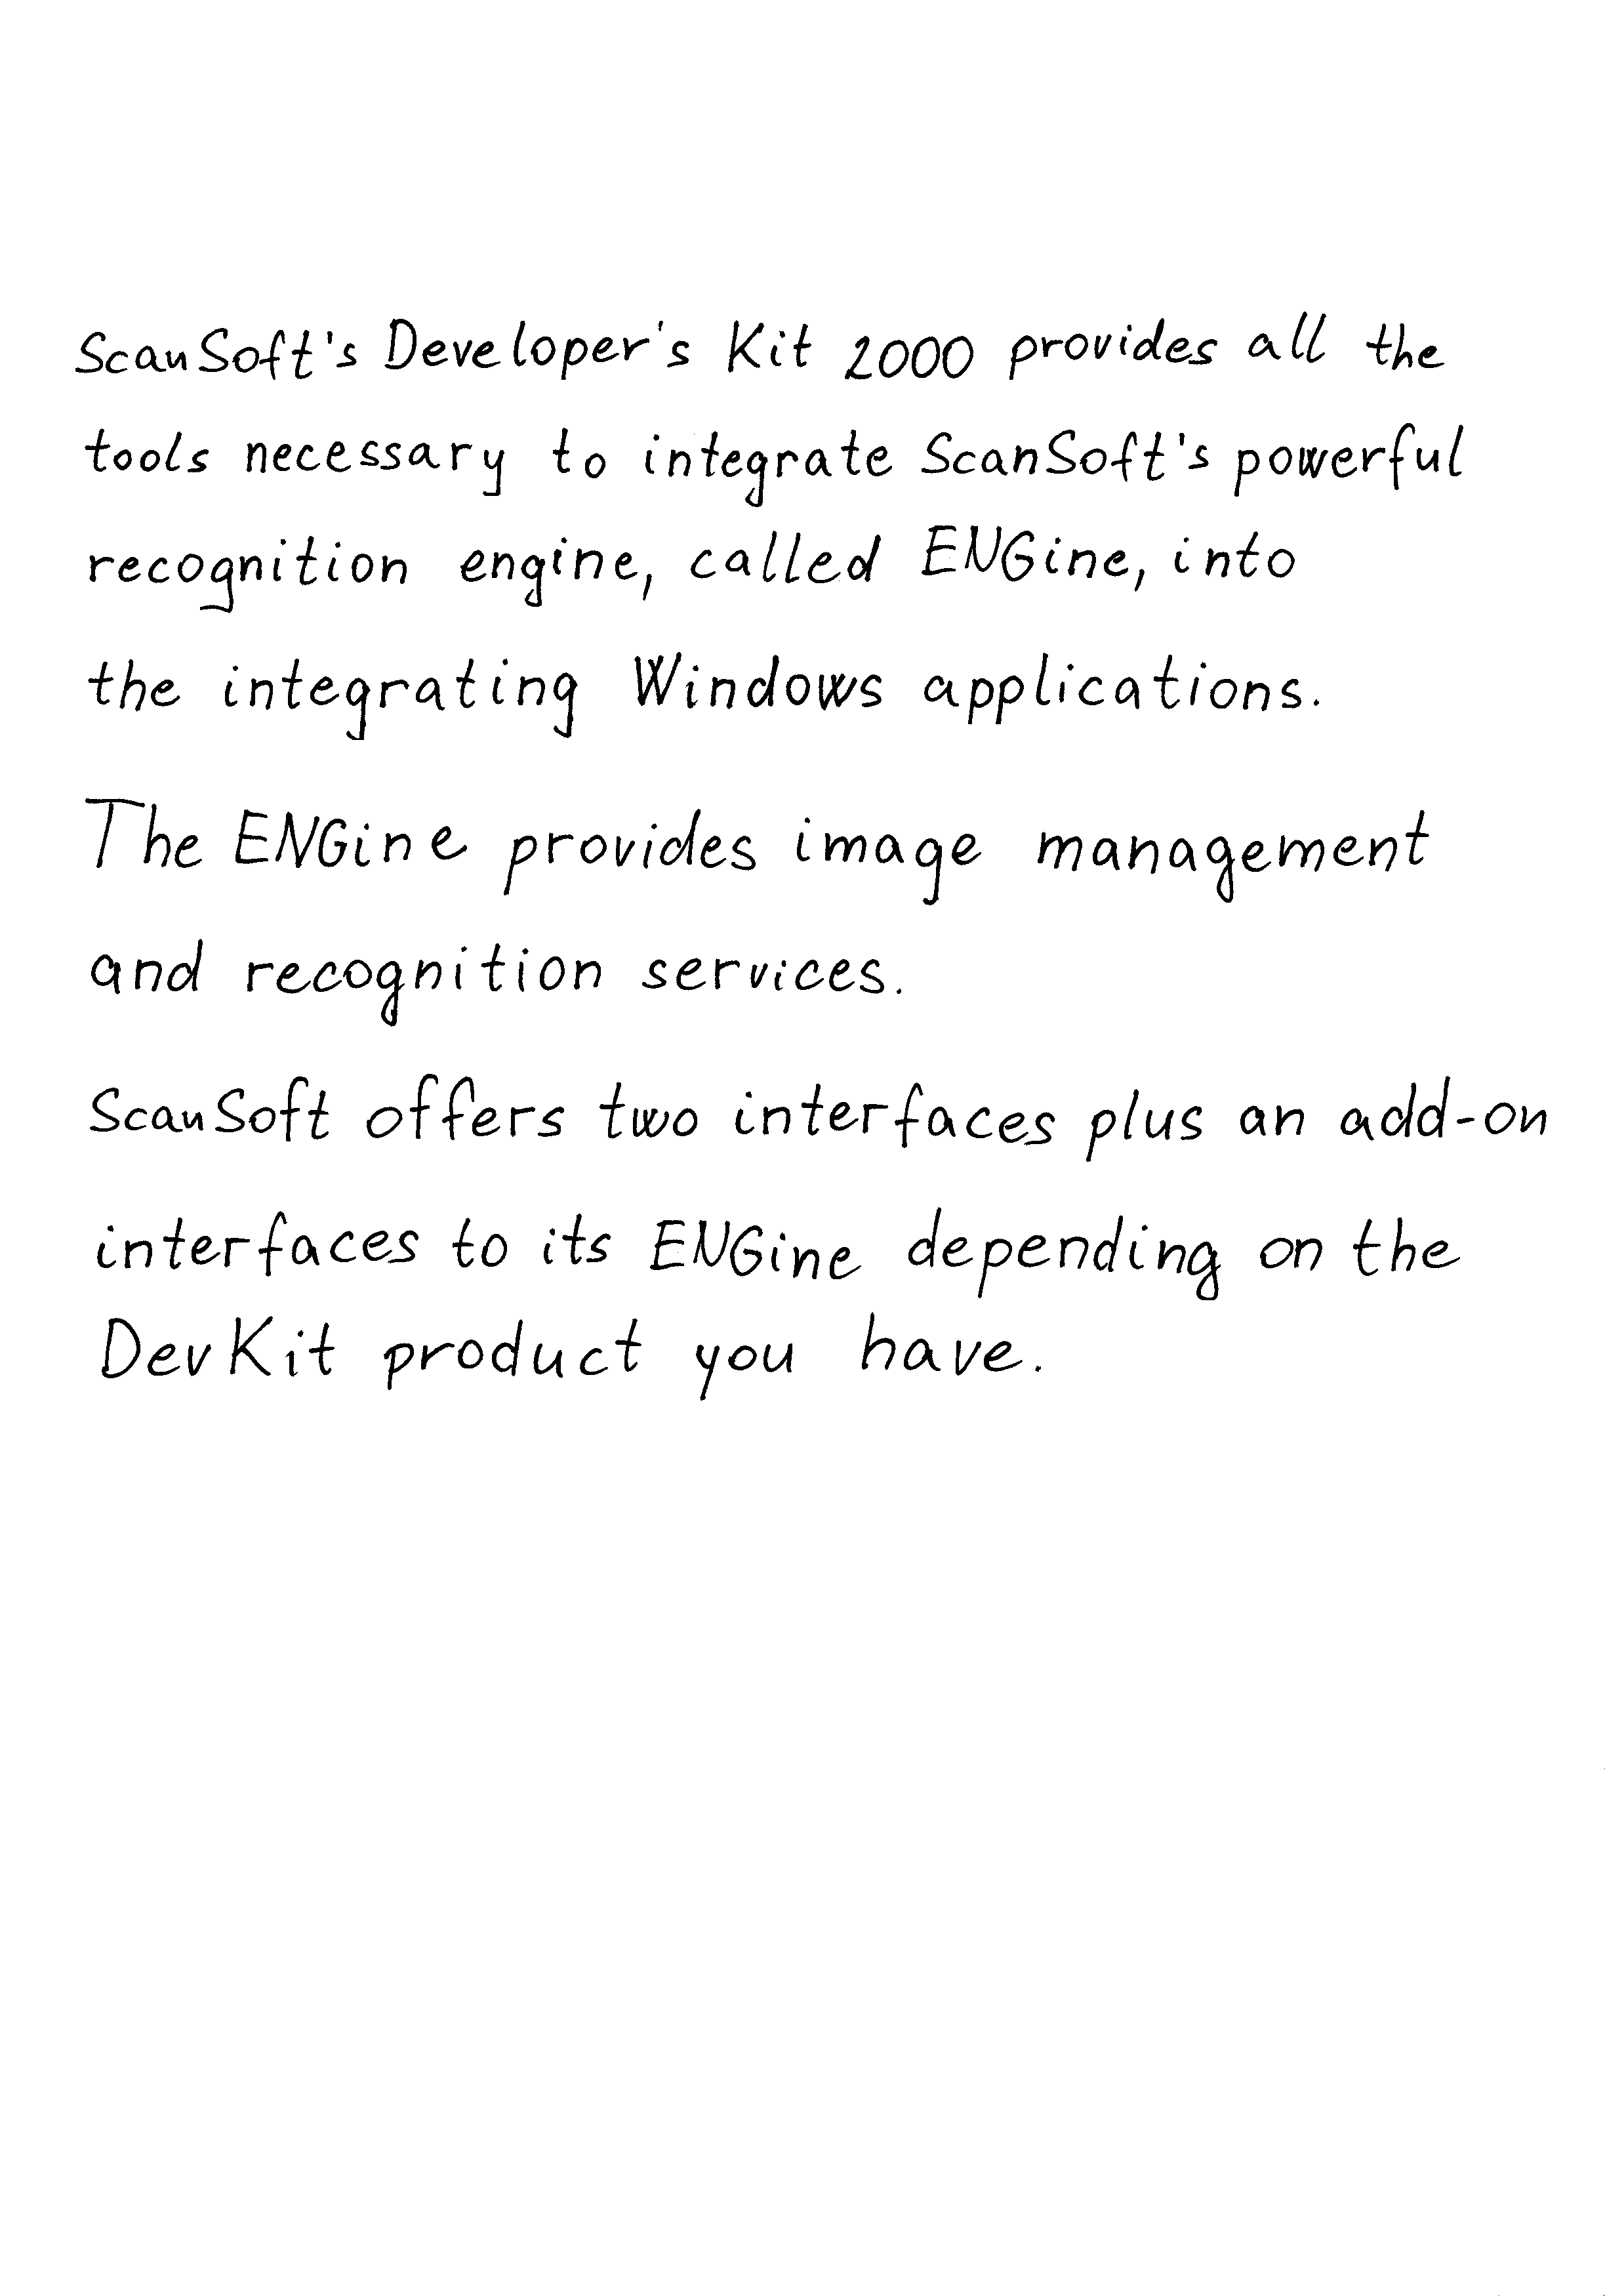 ScanSoft's Developer's Kit 2000 provides all the
tools necessary to integrate ScanSoft's powerful
recognition engine, called ENGine, into
the integrating Windows applications.
The ENGine provides image management
and recognition services.
ScanSoft offers two interfaces plus an add-on
interfaces to its ENGine depending on the
DevKit product you have.